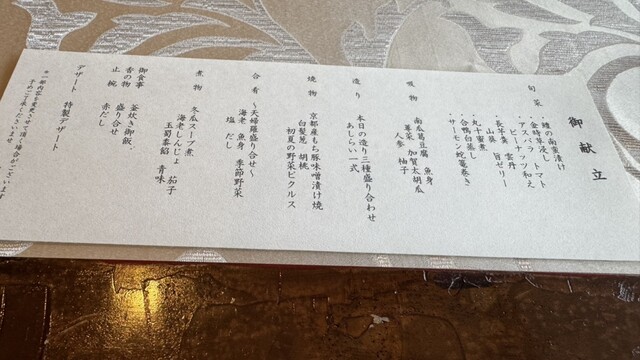 御献立
旬菜
・鱧の南蛮漬け
・金時草浸し トマト
・アスパラ
ピーナッツ和え
・長芋羹 雲丹
山葵 旨ゼリー
・丸十蜜煮
・合鴨白蒸し
・サーモン蛇籠巻き
吸物
南瓜葛豆腐 魚身
蓴菜 加賀太胡瓜
人参 柚子
造り
本日の造り三種盛り合わせ
あしらい一式
焼物
京都産もち豚味噌漬け焼
白髪葱 胡桃
初夏の野菜ピクルス
合肴
~天婦羅盛り合せ~
海老 魚身 季節野菜
塩 だし
煮物
冬瓜スープ煮
海老しんじょ 茄子
玉蜀黍餡 青味
御食事
釜炊き御飯、
香の物
盛り合せ
止椀
赤だし
デザート
特製デザート
予めご了承くださいませ